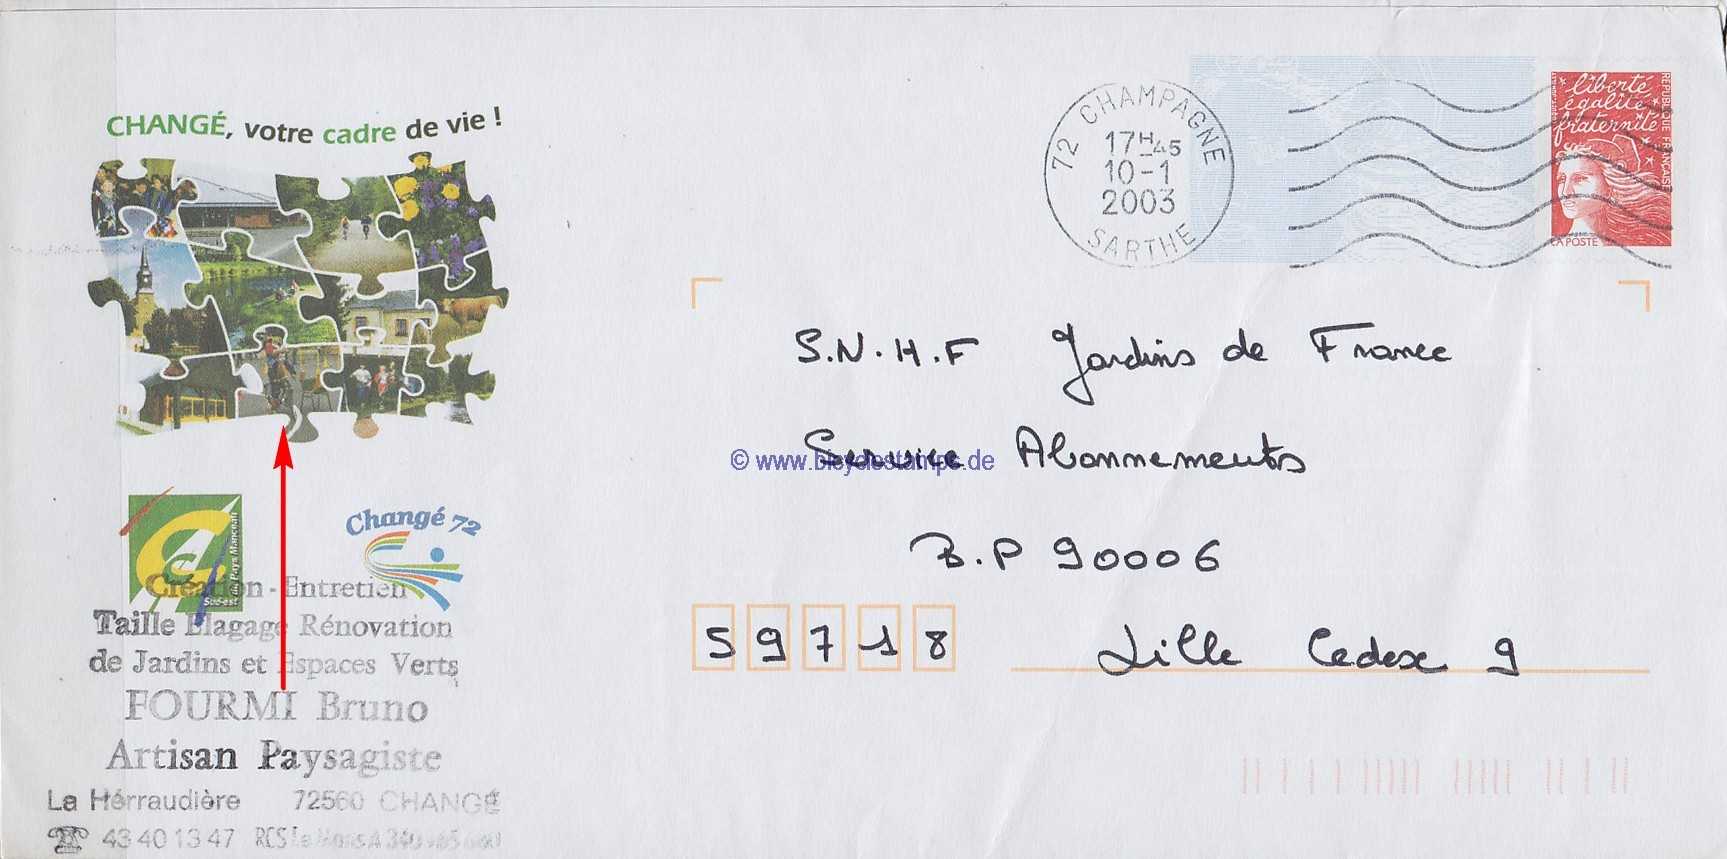 CHANGÉ, votre cadre de vie !
72 CHAMPAGNE
17H-45
10-1
2003
SARTHE
liberté
égalité
fraternité
RÉPUBLIQUE FRANÇAISE
LA POSTE
S.N.H.F Jardins de France
Service Abonnements
B.P 90006
59718 Lille Cedex 9
© www.bicyclestamps.de
Sud-est du Pays Manceau
Changé 72
Création - Entretien
Taille Elagage Rénovation
de Jardins et Espaces Verts
FOURMI Bruno
Artisan Paysagiste
La Hérraudière 72560 CHANGÉ
43 40 13 47 RCS Le Mans A 340